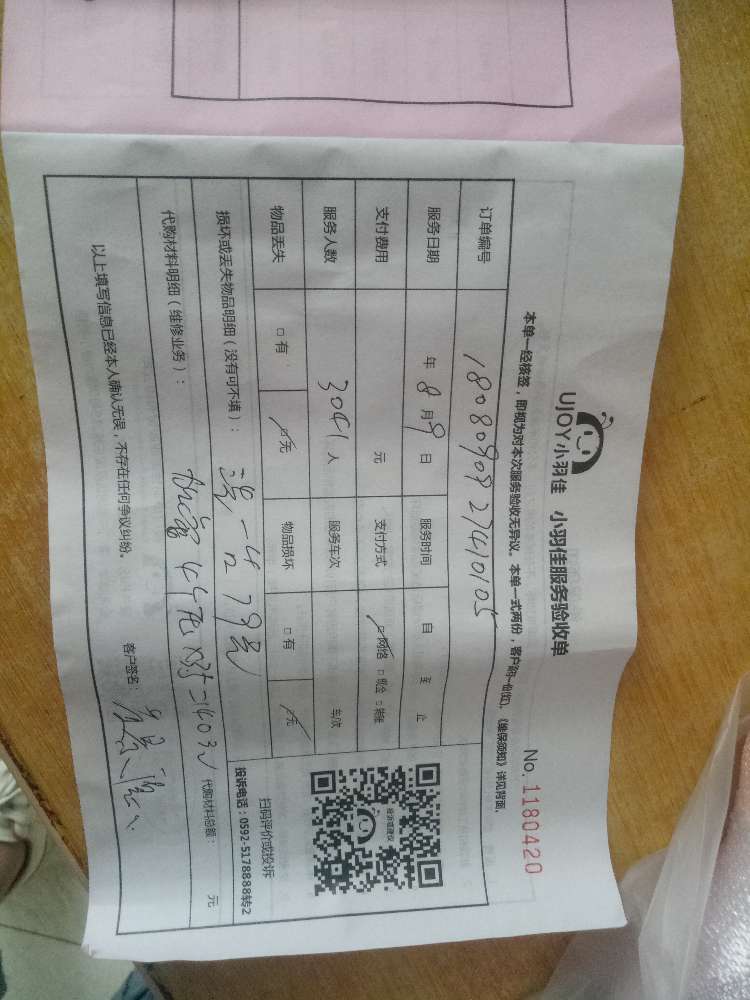 UJOY小羽佳 小羽佳服务验收单
No. 1180420
本单一经核签，即视为对本次服务验收无异议。本单一式两份，客户留一份(红)。《维保须知》详见背面。
订单编号 1808090827410105
服务日期 年 8 月 9 日 服务时间 自 至 止
支付费用 元 支付方式 □网络 □现金 □转账
服务人数 3041 人 服务车次 车/次
物品丢失 □有 □无 物品损坏 □有 □无
扫码评价或投诉
投诉电话：0592-5178888转2
损坏或丢失物品明细（没有可不填）：
代购材料明细（维修业务）： 代购材料总额： 元
以上填写信息已经本人确认无误，不存在任何争议纠纷。 客户签名：